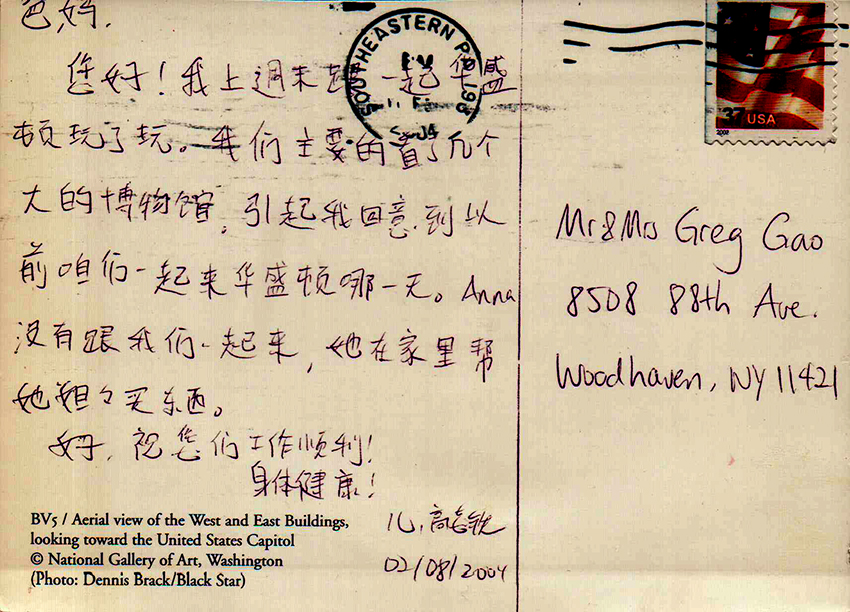 爸妈,
您好!我上週末 一起华盛
顿玩了玩。我们主要的看了几个
大的博物馆,引起我回意到以
前咱们一起来华盛顿哪一天。Anna
没有跟我们一起来,她在家里帮
她姐々买东西。
好,祝您们工作顺利!
身体健康!
儿,高志锐
02/08/2004
BV5 / Aerial view of the West and East Buildings,
looking toward the United States Capitol
© National Gallery of Art, Washington
(Photo: Dennis Brack/Black Star)
SOUTHEASTERN P
PM
37 USA
2002
Mr & Mrs Greg Gao
8508 88th Ave.
Woodhaven, NY 11421